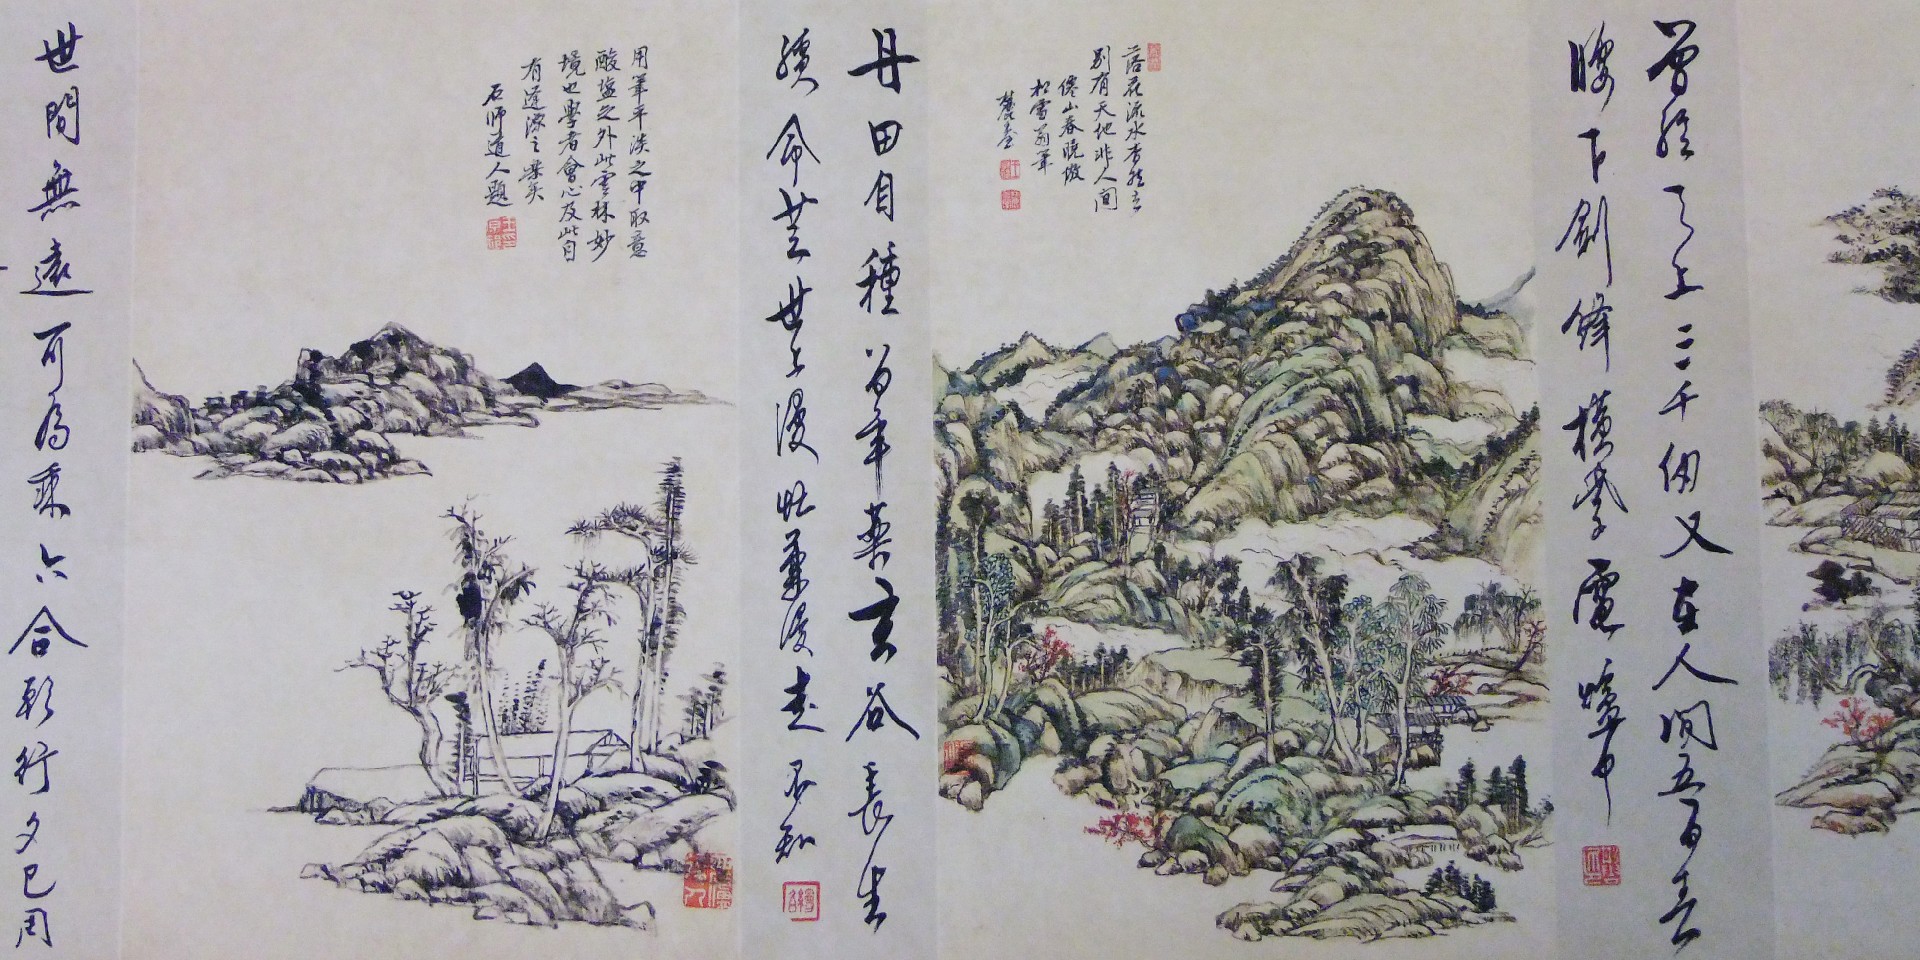 曾經天上三千劫又在人間五百年
腰下劍鋒橫紫電爐中
落花流水杳然去
別有天地非人間
僊山春曉倣
松雪翁筆
麓臺
丹田自種留年藥玄谷長生
續命芝世上漫忙兼漫走不知
用筆平淡之中取意
酸鹽之外此雲林妙
境也學者會心及此自
有逢源之樂矣
石師道人題
世間無遠可為乘六合朝行夕已周